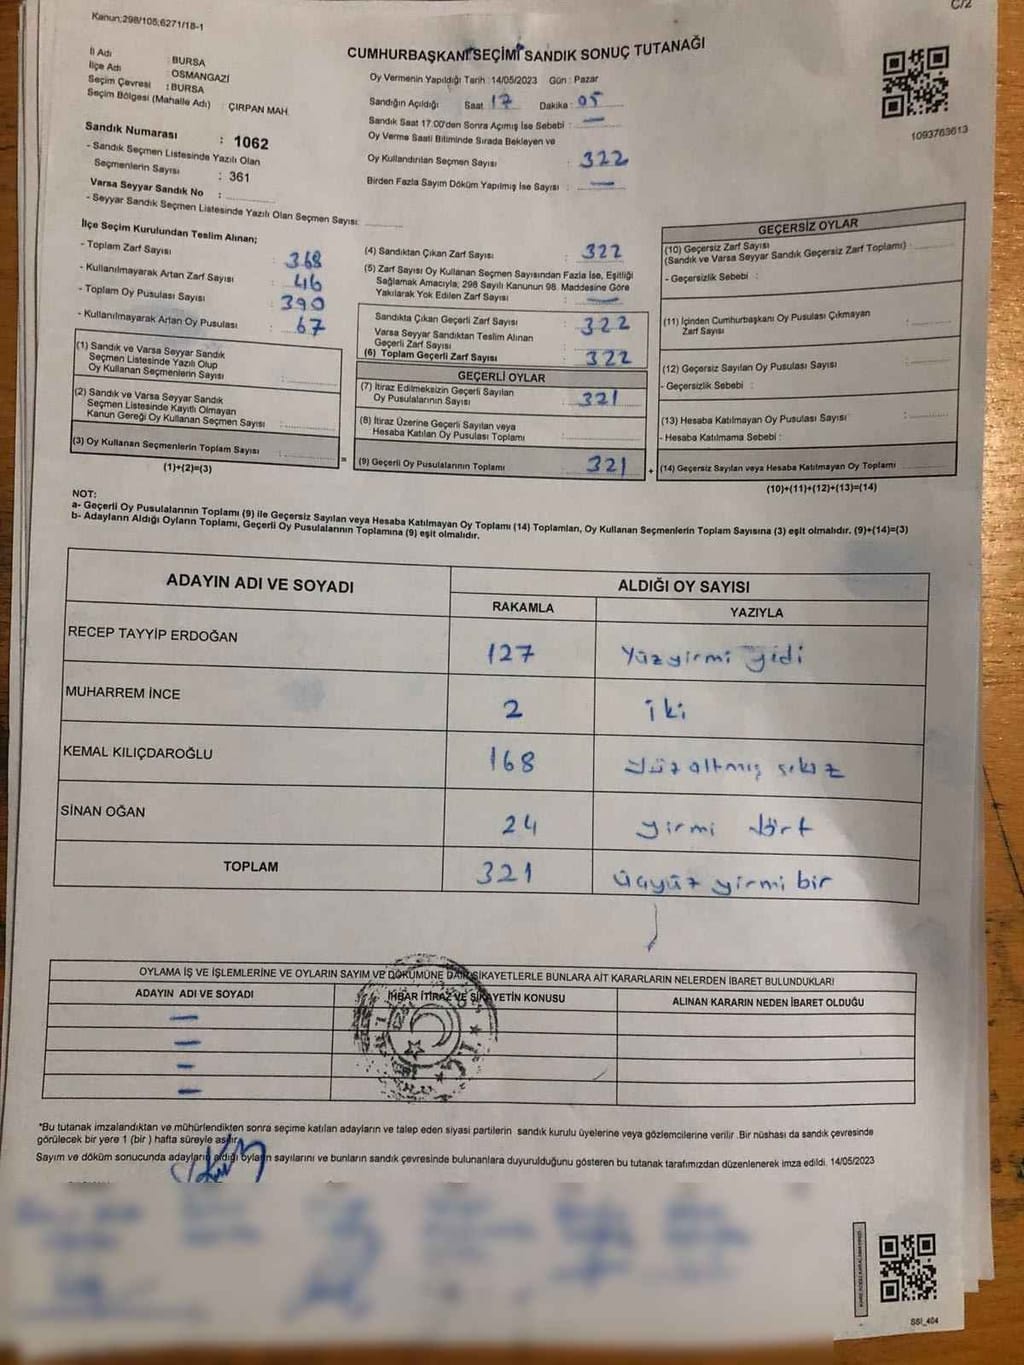 C/2
Kanun;298/105;6271/18-1
CUMHURBAŞKANI SEÇİMİ SANDIK SONUÇ TUTANAĞI
İl Adı : BURSA
İlçe Adı : OSMANGAZİ
Seçim Çevresi : BURSA
Seçim Bölgesi (Mahalle Adı) ÇIRPAN MAH.
Sandık Numarası : 1062
- Sandık Seçmen Listesinde Yazılı Olan
Seçmenlerin Sayısı : 361
Varsa Seyyar Sandık No :
- Seyyar Sandık Seçmen Listesinde Yazılı Olan Seçmen Sayısı:
Oy Vermenin Yapıldığı Tarih : 14/05/2023 Gün : Pazar
Sandığın Açıldığı Saat 17 Dakika : 05
Sandık Saat 17:00'den Sonra Açımış İse Sebebi : —
Oy Verme Saati Bitiminde Sırada Bekleyen ve
Oy Kullandırılan Seçmen Sayısı : 322
Birden Fazla Sayım Döküm Yapılmış İse Sayısı : —
1093763613
İlçe Seçim Kurulundan Teslim Alınan;
- Toplam Zarf Sayısı : 368
- Kullanılmayarak Artan Zarf Sayısı : 46
- Toplam Oy Pusulası Sayısı : 390
- Kullanılmayarak Artan Oy Pusulası : 67
(1) Sandık ve Varsa Seyyar Sandık
Seçmen Listesinde Yazılı Olup
Oy Kullanan Seçmenlerin Sayısı :
(2) Sandık ve Varsa Seyyar Sandık
Seçmen Listesinde Kayıtlı Olmayan
Kanun Gereği Oy Kullanan Seçmen Sayısı :
(3) Oy Kullanan Seçmenlerin Toplam Sayısı :
(1)+(2)=(3)
=
(4) Sandıktan Çıkan Zarf Sayısı : 322
(5) Zarf Sayısı Oy Kullanan Seçmen Sayısından Fazla İse, Eşitliği
Sağlamak Amacıyla; 298 Sayılı Kanunun 98. Maddesine Göre
Yakılarak Yok Edilen Zarf Sayısı : —
Sandıkta Çıkan Geçerli Zarf Sayısı : 322
Varsa Seyyar Sandıktan Teslim Alınan
Geçerli Zarf Sayısı :
(6) Toplam Geçerli Zarf Sayısı : 322
GEÇERLİ OYLAR
(7) İtiraz Edilmeksizin Geçerli Sayılan
Oy Pusulalarının Sayısı : 321
(8) İtiraz Üzerine Geçerli Sayılan veya
Hesaba Katılan Oy Pusulası Toplamı :
(9) Geçerli Oy Pusulalarının Toplamı : 321
+
GEÇERSİZ OYLAR
(10) Geçersiz Zarf Sayısı
(Sandık ve Varsa Seyyar Sandık Geçersiz Zarf Toplamı) :
- Geçersizlik Sebebi :
(11) İçinden Cumhurbaşkanı Oy Pusulası Çıkmayan
Zarf Sayısı :
(12) Geçersiz Sayılan Oy Pusulası Sayısı :
- Geçersizlik Sebebi :
(13) Hesaba Katılmayan Oy Pusulası Sayısı :
- Hesaba Katılmama Sebebi :
(14) Geçersiz Sayılan veya Hesaba Katılmayan Oy Toplamı
(10)+(11)+(12)+(13)=(14)
NOT:
a- Geçerli Oy Pusulalarının Toplamı (9) ile Geçersiz Sayılan veya Hesaba Katılmayan Oy Toplamı (14) Toplamları, Oy Kullanan Seçmenlerin Toplam Sayısına (3) eşit olmalıdır. (9)+(14)=(3)
b- Adayların Aldığı Oyların Toplamı, Geçerli Oy Pusulalarının Toplamına (9) eşit olmalıdır.
ADAYIN ADI VE SOYADI ALDIĞI OY SAYISI
RAKAMLA YAZIYLA
RECEP TAYYİP ERDOĞAN 127 Yüzyirmi yedi
MUHARREM İNCE 2 iki
KEMAL KILIÇDAROĞLU 168 Yüzaltmış sekiz
SİNAN OĞAN 24 yirmi dört
TOPLAM 321 üçyüz yirmi bir
OYLAMA İŞ VE İŞLEMLERİNE VE OYLARIN SAYIM VE DÖKÜMÜNE DAİR ŞİKAYETLERLE BUNLARA AİT KARARLARIN NELERDEN İBARET BULUNDUKLARI
ADAYIN ADI VE SOYADI İHBAR İTİRAZ VE ŞİKAYETİN KONUSU ALINAN KARARIN NEDEN İBARET OLDUĞU
—
—
—
—
*Bu tutanak imzalandıktan ve mühürlendikten sonra seçime katılan adayların ve talep eden siyasi partilerin sandık kurulu üyelerine veya gözlemcilerine verilir .Bir nüshası da sandık çevresinde
görülecek bir yere 1 (bir ) hafta süreyle asılır.
Sayım ve döküm sonucunda adayların aldığı oyların sayılarını ve bunların sandık çevresinde bulunanlara duyurulduğunu gösteren bu tutanak tarafımızdan düzenlenerek imza edildi. 14/05/2023
SSI_404